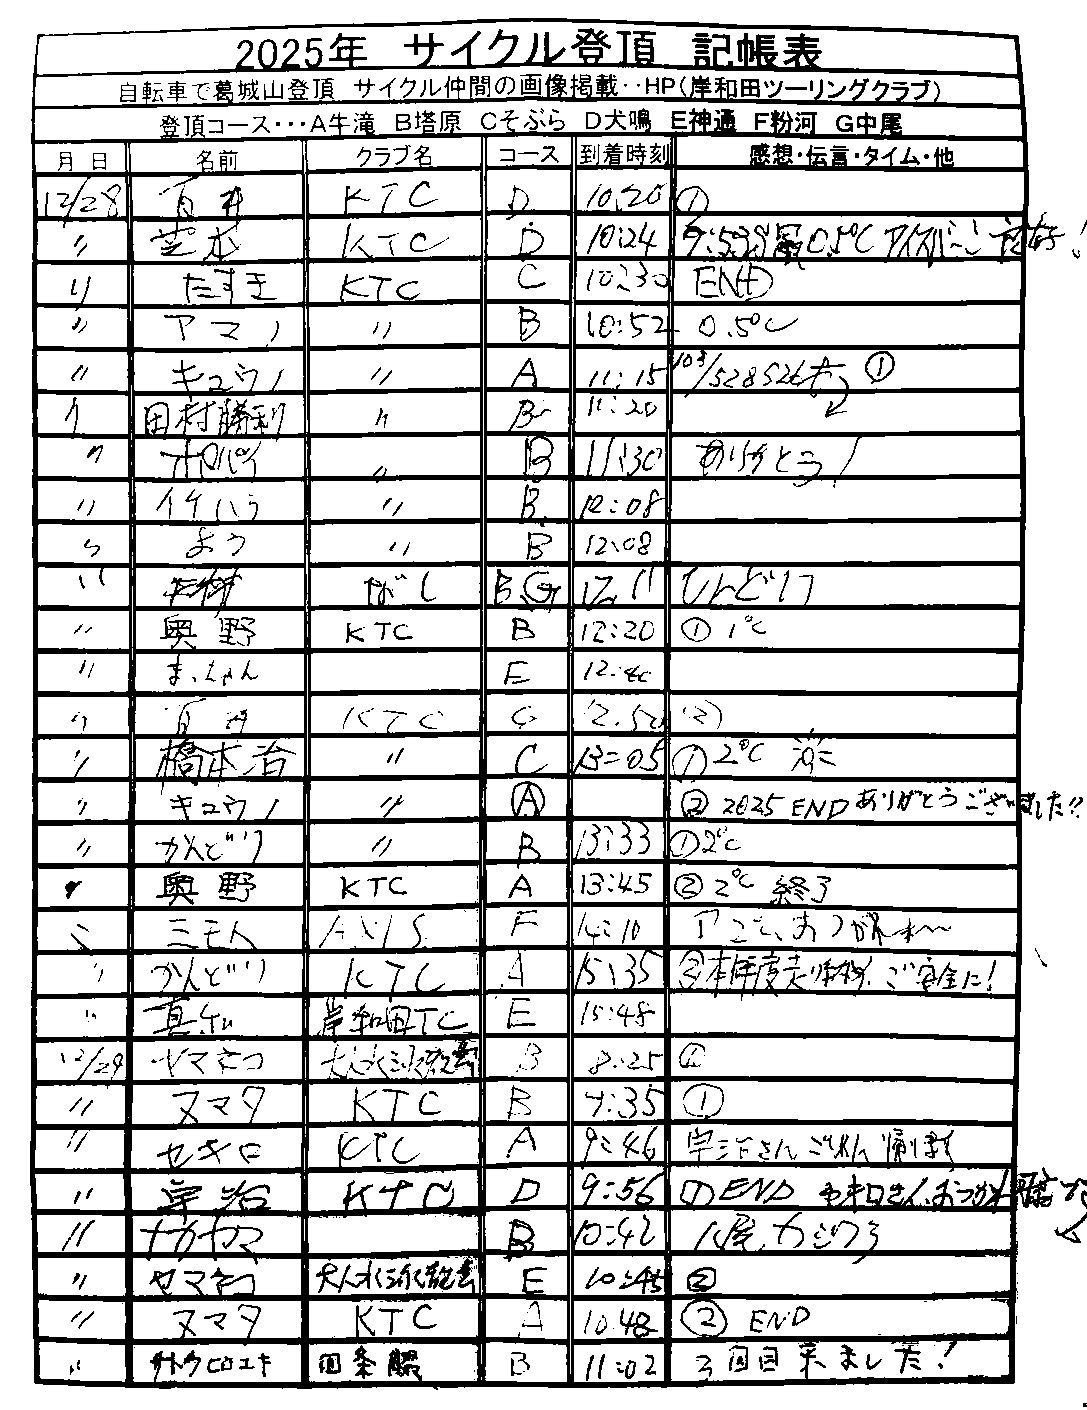 2025年 サイクル登頂 記帳表
自転車で葛城山登頂 サイクル仲間の画像掲載‥HP(岸和田ツーリングクラブ)
登頂コース・・・A牛滝 B塔原 Cそぶら D犬鳴 E神通 F粉河 G中尾
月日 名前 クラブ名 コース 到着時刻 感想・伝言・タイム・他
12/28 百井 KTC D 10:20 ①
〃 芝本 KTC D 10:24 0.5℃ アイスバーン
〃 たすき KTC C 10:30 END
〃 アマノ 〃 B 10:52 0.5℃
〃 キュウノ 〃 A 11:15 ①
〃 田村勝利 〃 B 11:20
〃 ポパイ 〃 B 11:30 ありがとう!
〃 イケハラ 〃 B 12:08
〃 よう 〃 B 12:08
〃 なし B,G 12,11 しんどいっ
〃 奥野 KTC B 12:20 ① 1℃
〃 まっちゃん E 12:40
〃 百井 KTC G 12.50 ②
〃 橋本治 〃 C 13:05 ① 2℃
〃 キュウノ 〃 Ⓐ ② 2025 END ありがとうございました!!
〃 かんどり 〃 B 13:33 ① 2℃
〃 奥野 KTC A 13:45 ② 2℃ 終了
〃 ミモト AXIS F 14:10
〃 かんどり KTC A 15:35 ②本年度走り納め、ご安全に!
〃 岸和田TC E 15:48
12/29 ヤマネコ 大人水泳教室 B 8:25 ①
〃 ヌマタ KTC B 9:35 ①
〃 セキロ KTC A 9:46 宇治さんごめん 帰ります
〃 宇治 KTC D 9:56 ① END セキロさん、おつかれ
〃 ナカヤマ B 10:42
〃 ヤマネコ 大人水泳教室 E 10:45 ②
〃 ヌマタ KTC A 10:48 ② END
〃 サトウヒロユキ B 11:02 3回目来ました!